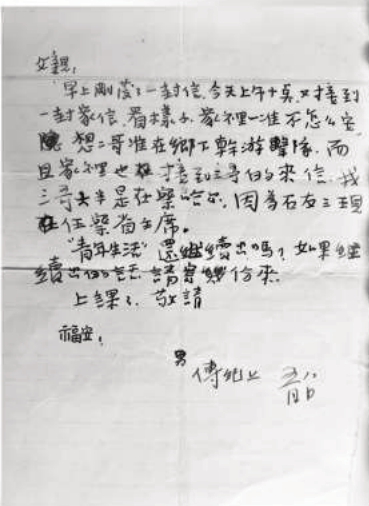 父親：
早上剛發了一封信，今天上午十点又接到
一封家信，看樣子，家裡一准不怎么安
想二哥准在鄉下幹游擊隊，而
且家裡也接到三哥的來信，我
三哥大半是在 因為石友三現
在任 省主席。
“青年生活”還继续出嗎？如果继
續出的話請寄幾份來
上課了，敬請
福安！
男
傅